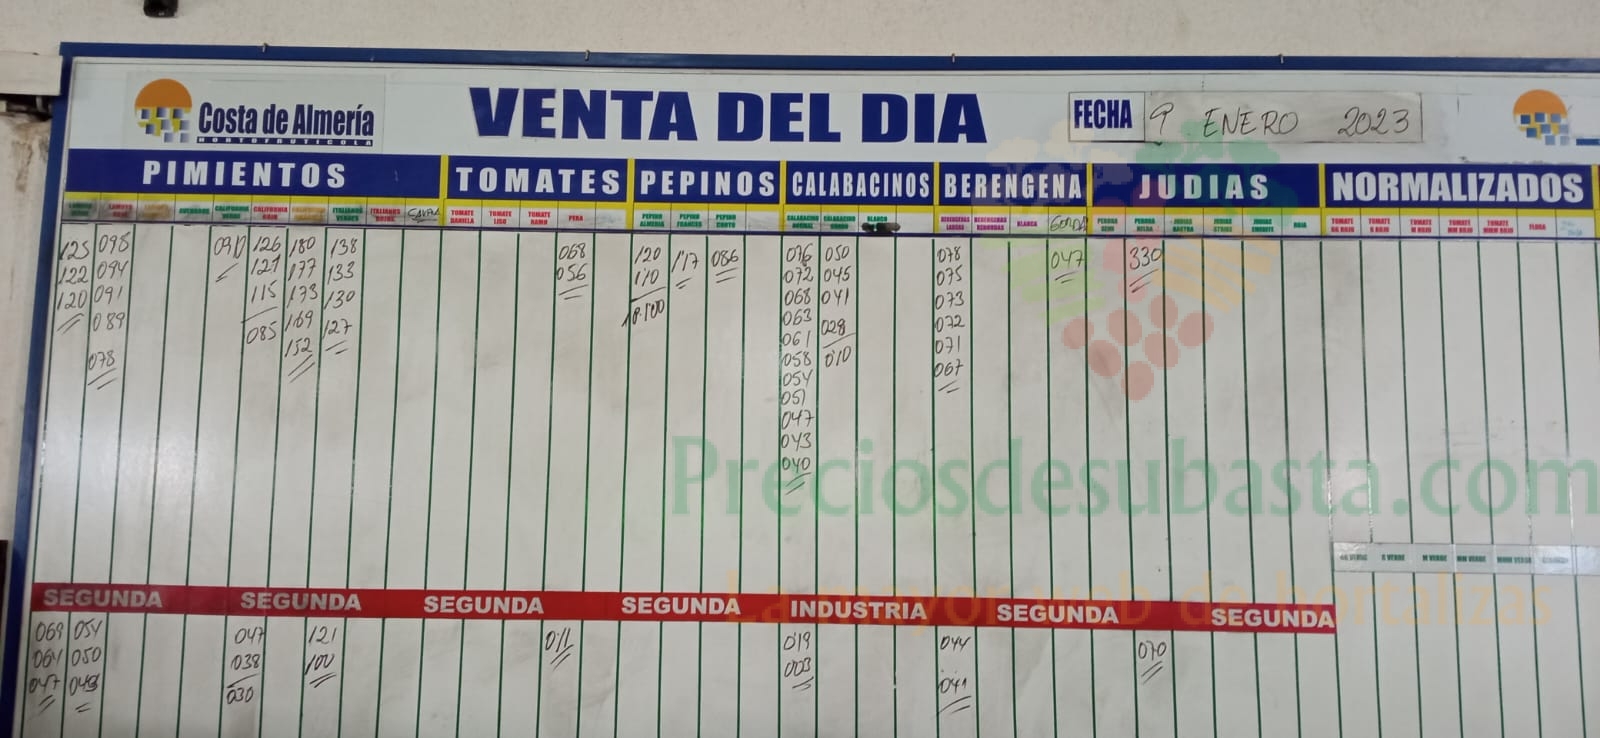 Costa de Almería
HORTOFRUTICOLA
VENTA DEL DIA
FECHA 9 ENERO 2023
PIMIENTOS TOMATES PEPINOS CALABACINOS BERENGENA JUDIAS NORMALIZADOS
LAMUYO ROJO CALIFORNIA VERDE CALIFORNIA ROJO ITALIANOS VERDES ITALIANOS TOMATE DANIELA TOMATE LISO TOMATE RAMO PERA PEPINO ALMERIA PEPINO FRANCES PEPINO CORTO CALABACINO NORMAL CALABACINO GORDO BLANCO BERENGENAS LARGAS BERENGENAS REDONDAS BLANCA GORDA PERONA SEMI PERONA HELDA JUDIAS JUDIAS STRIKE JUDIAS ROJA TOMATE GG ROJO TOMATE G ROJO TOMATE M ROJO TOMATE MM ROJO TOMATE MMM ROJO FLORA
125 098 126 180 138 068 120 117 086 076 050 078 047 330
122 094 121 177 133 056 110 072 045 075
120 091 115 173 130 068 041 073
089 085 169 127 063 028 072
078 152 061 010 071
058 067
054
051
047
043
040
Preciosdesubasta.com
GG VERDE G VERDE M VERDE MM VERDE MMM VERDE
La mayor web de hortalizas
SEGUNDA SEGUNDA SEGUNDA SEGUNDA INDUSTRIA SEGUNDA SEGUNDA
069 054 047 121 011 019 044 070
064 050 038 100 003
047 030 041